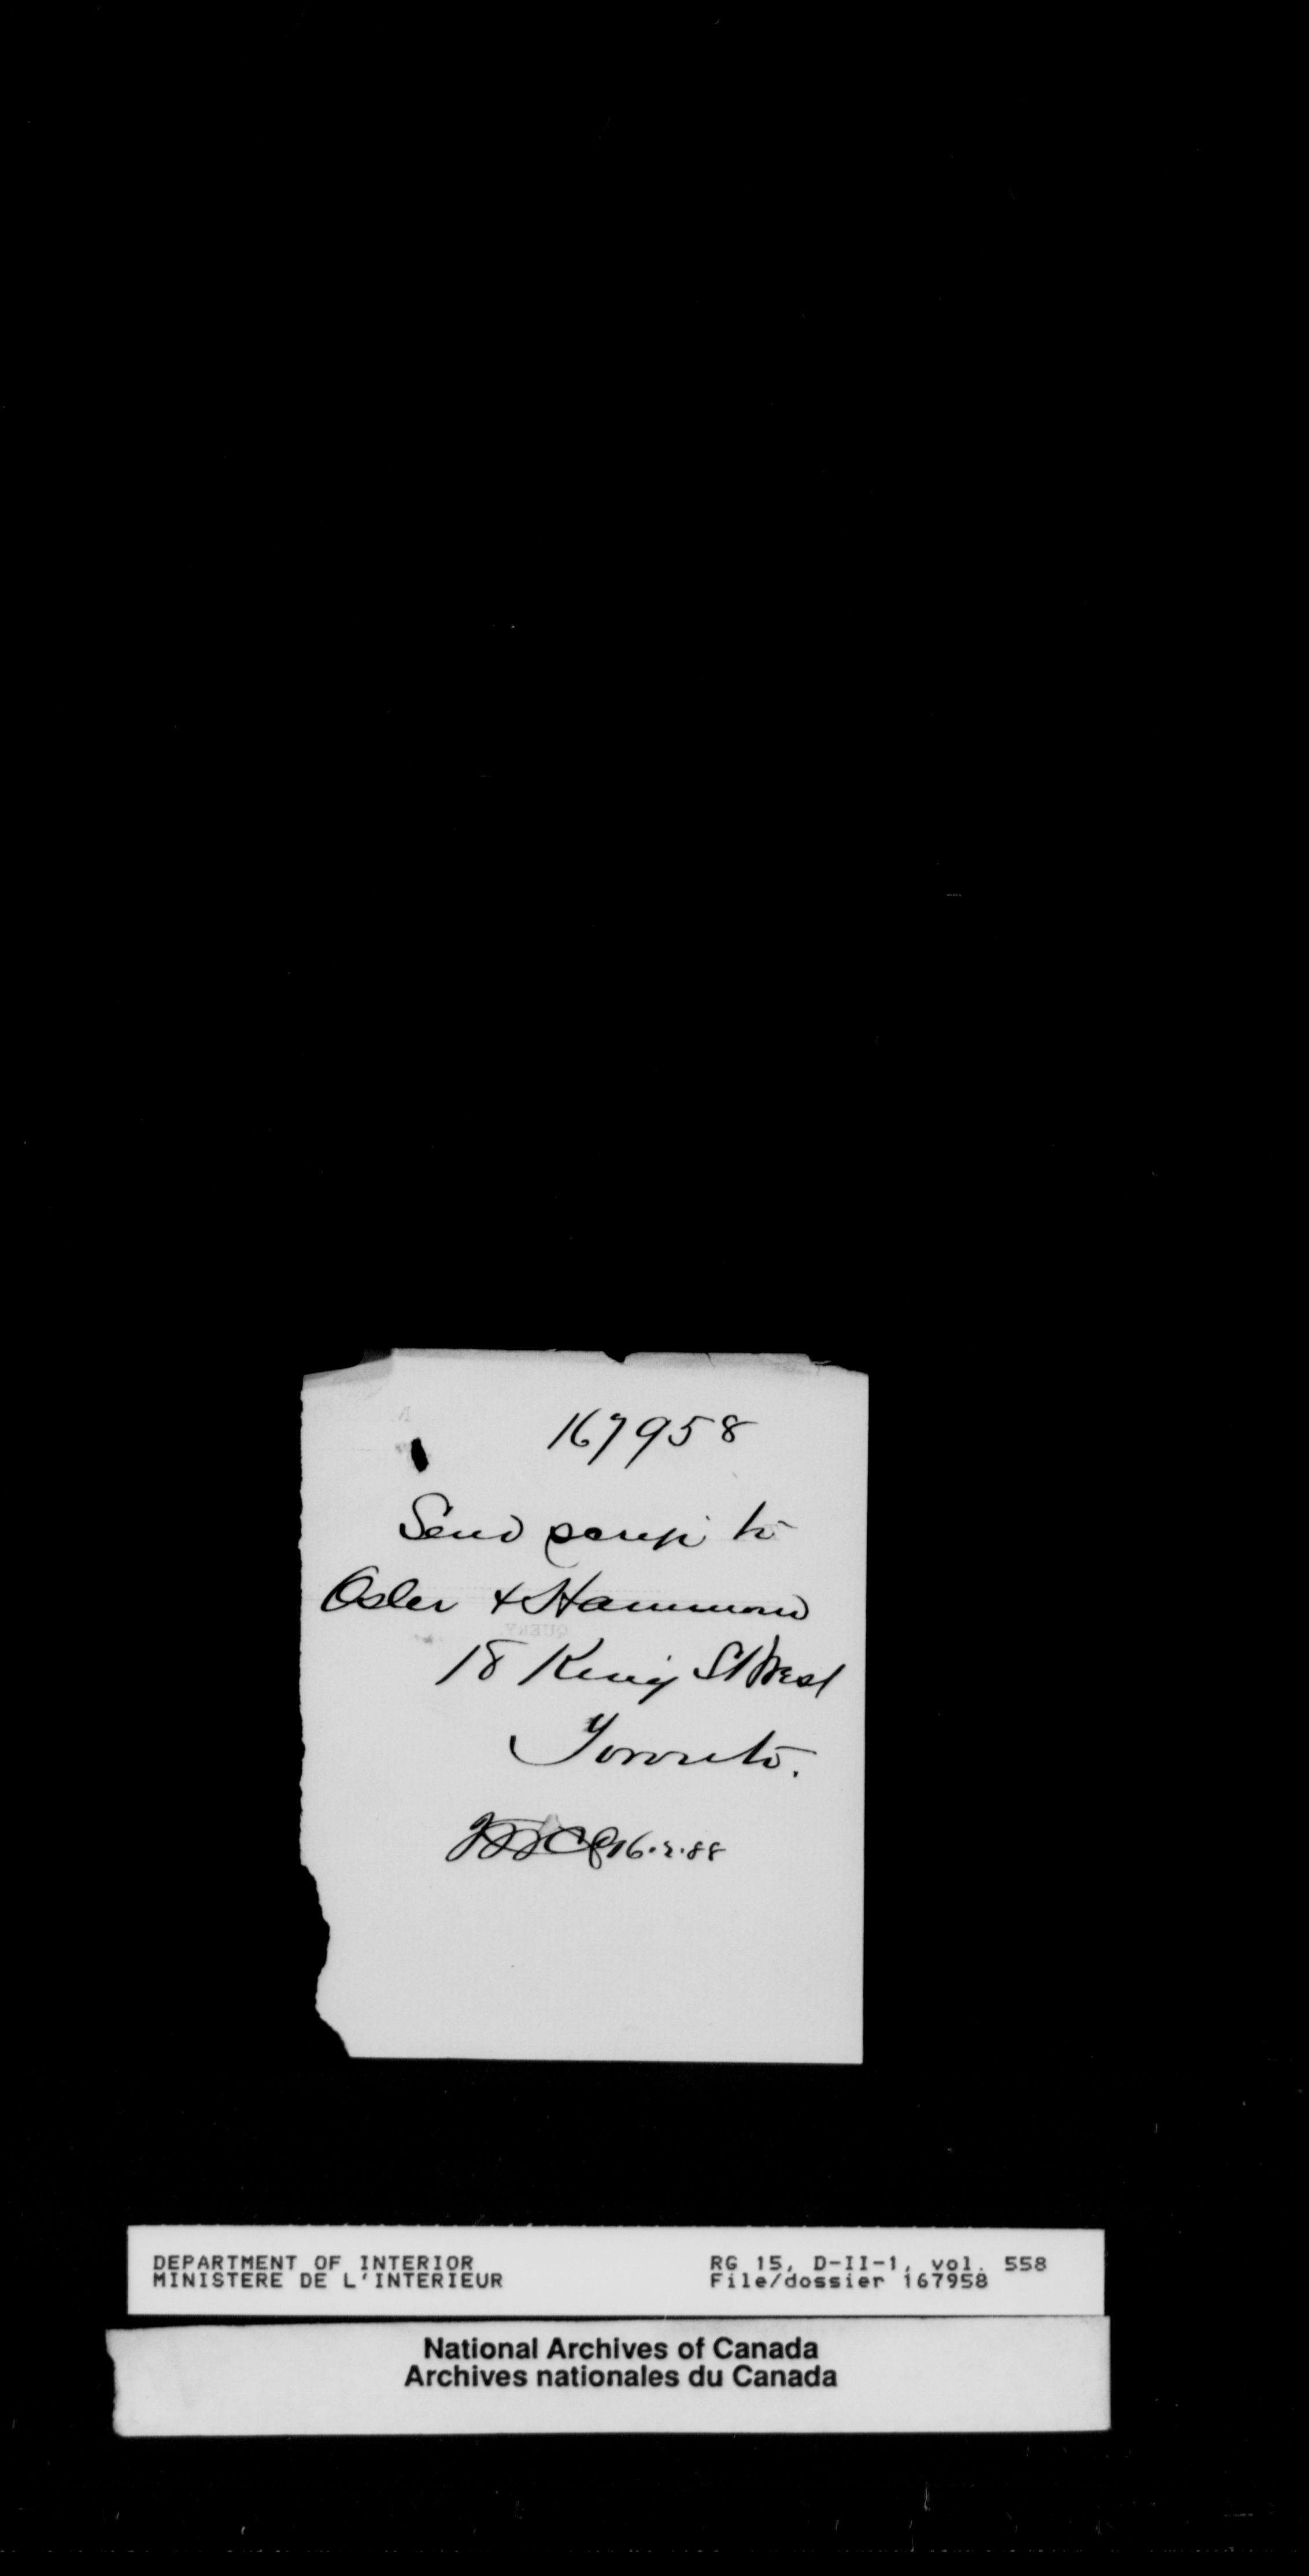 167958
Send scrip to
Osler & Hammond
18 King St West
Toronto.
16.2.88
DEPARTMENT OF INTERIOR RG 15, D-II-1, vol. 558
MINISTERE DE L'INTERIEUR File/dossier 167958
National Archives of Canada
Archives nationales du Canada